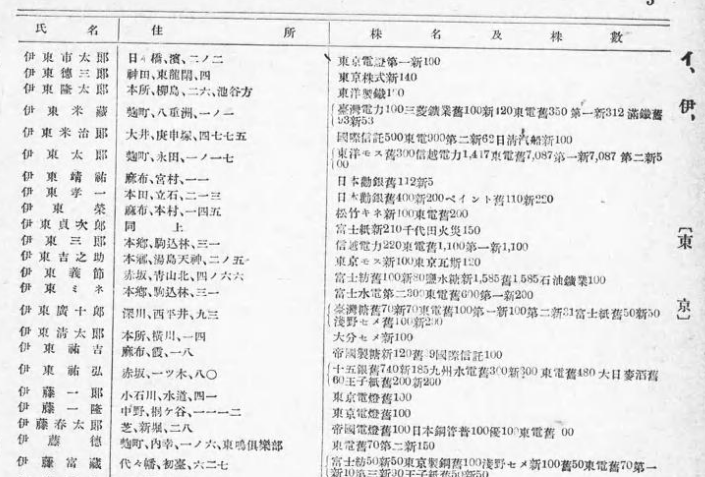 氏名 住所 株名及株數
伊東市太郎 日本橋、濱、二ノ二 東京電燈第一新100
伊東德三郎 神田、東龍閑、四 東京株式新140
伊東隆太郎 本所、柳島、二六、池谷方 東洋製鐵
伊東米藏 麴町、八重洲、一ノ一 臺灣電力100三菱鑛業舊100新420東電舊350 第一新312 滿鐵舊
93新53
伊東米治郎 大井、庚申塚、四七七五 國際信託500東電900第二新62日淸汽船新100
伊東太郎 麴町、永田、一ノ一七 東洋モス舊300信越電力1,417東電舊7,087第一新7,087 第二新5
00
伊東靖祐 麻布、宮村、一一 日本勸銀舊112新5
伊東孝一 本田、立石、二一三 日本勸銀舊400新200ペイント舊110新220
伊東榮 麻布、本村、一四五 松竹キネ新100東電舊200
伊東貞次郎 同上 富士紙新210千代田火災150
伊東三郎 本鄕、駒込林、三一 信越電力220東電舊1,100第一新1,100
伊東吉之助 本鄕、湯島天神、二ノ五 東京モス新100東京瓦斯120
伊東義節 赤坂、靑山北、四ノ六六 富士紡舊100新80鹽水糖新1,585舊1,585石油鑛業100
伊東ミネ 本鄕、駒込林、三一 富士水電第二300東電舊600第一新200
伊東廣十郎 深川、西平井、九三 臺灣糖舊70新70東電舊100第一新100第二新31富士紙舊50新50
淺野セメ舊100新200
伊東淸太郎 本所、橫川、一四 大分セメ新100
伊東祐吉 麻布、霞、一八 帝國製糖新120舊 國際信託100
伊東祐弘 赤坂、一ツ木、八〇 十五銀舊740新185九州水電舊300新300 東電舊480 大日麥酒舊
60王子紙舊200新200
伊藤一郎 小石川、水道、四一 東京電燈舊100
伊藤一隆 中野、桐ケ谷、一一一二 東京電燈舊100
伊藤春太郎 芝、新堀、二八 帝國電燈舊100日本銅管普100優100東電舊
伊藤德 麴町、內幸、一ノ六、東鳴俱樂部 東電舊70第二新150
伊藤富藏 代々幡、初臺、六二七 富士紡50新50東京製鋼舊100淺野セメ新100舊50東電舊70第一
新10第三新30王子紙舊50新50
イ、伊、
〔東京〕